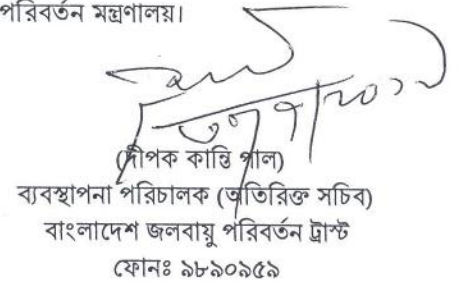 পরিবর্তন মন্ত্রণালয়।
(দীপক কান্তি পাল)
ব্যবস্থাপনা পরিচালক (অতিরিক্ত সচিব)
বাংলাদেশ জলবায়ু পরিবর্তন ট্রাস্ট
ফোনঃ ৯৮৯০৯৫৯